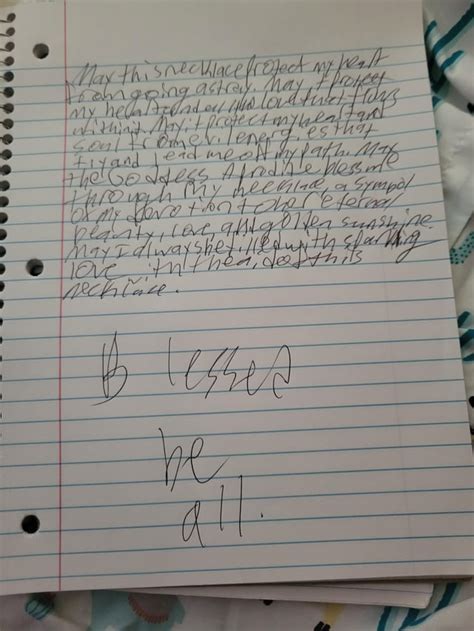 May this necklace protect my heart
from going astray. May it protect
my heart and all the love that flows
within it. May it protect my heart and
soul from evil energies that
try and lead me off my path. May
the Goddess Afrodite bless me
through my necklace, a symbol
of my devotion to her eternal
beauty, love, and golden sunshine.
May I always be filled with
love with the aid of this
necklace.
Blessed
be
all.